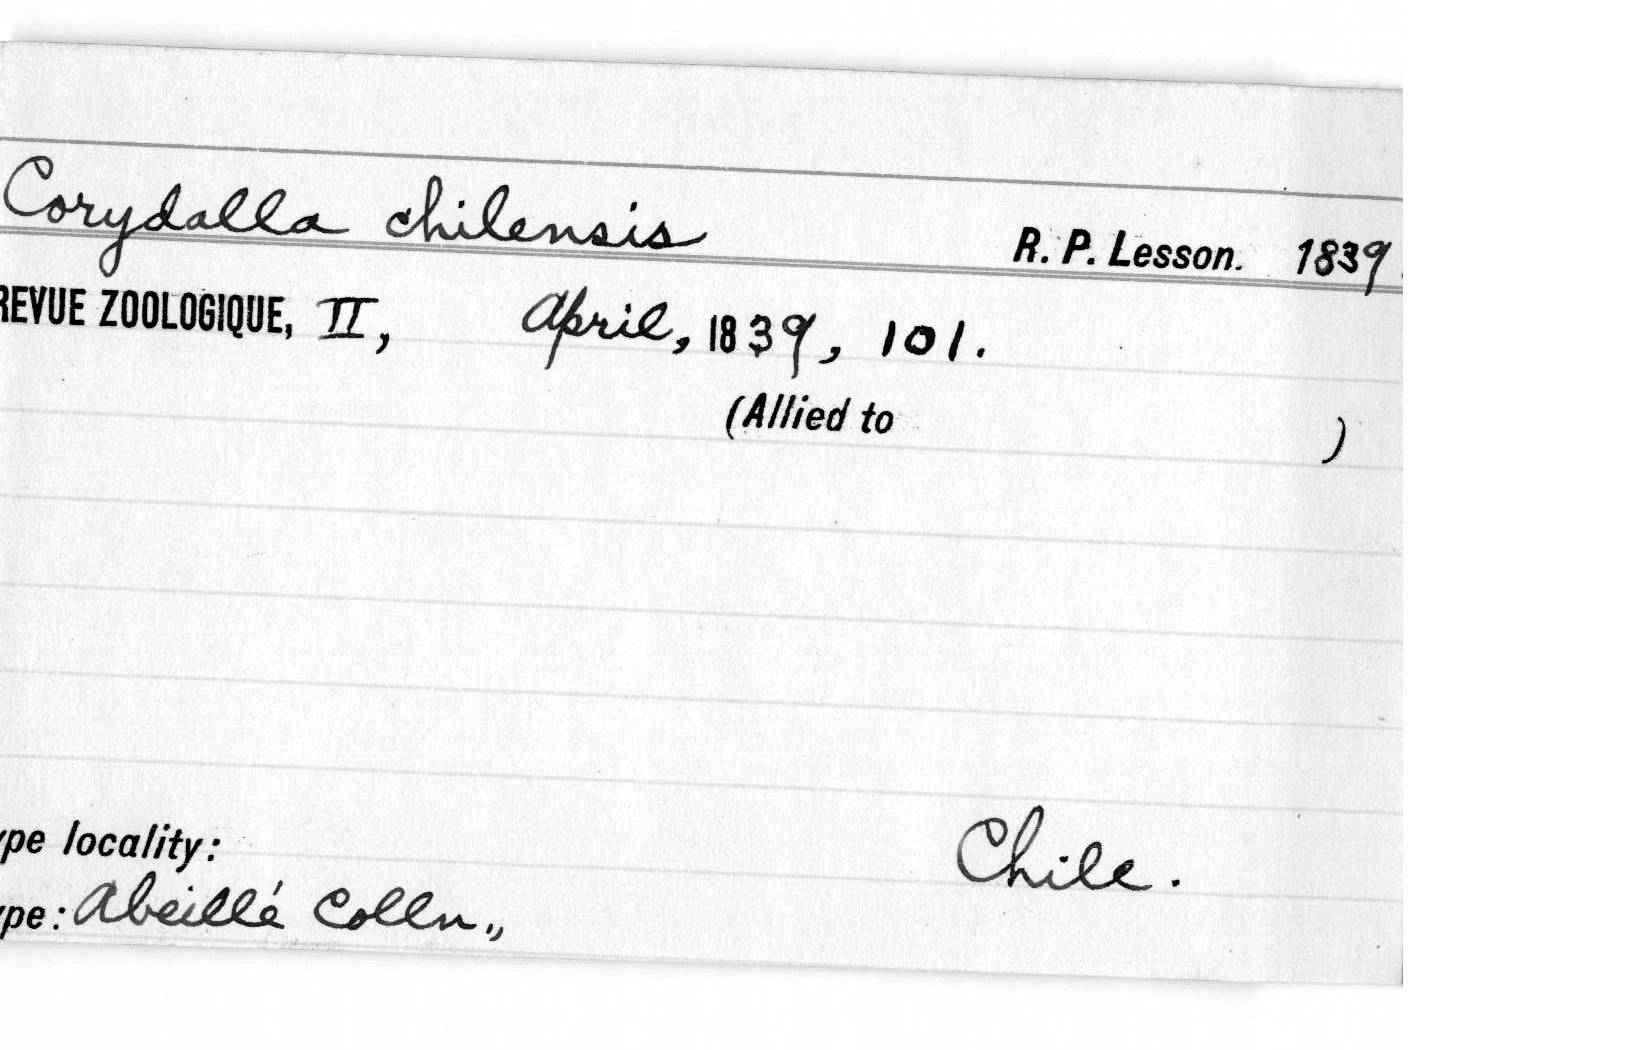 Corydalla chilensis R. P. Lesson. 1839.
REVUE ZOOLOGIQUE, II, April, 1839, 101.
(Allied to )
ype locality: Chile.
ype: Abeillé Colln.,